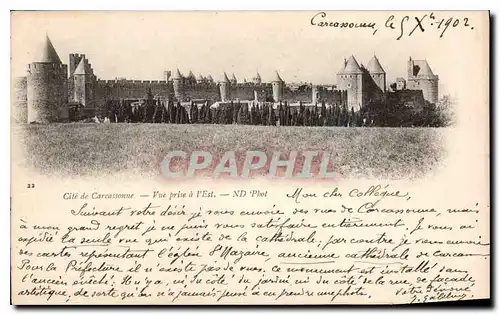 Carcassonne, le 5 Xbre 1902.
CPARAMA
22
Cité de Carcassonne — Vue prise à l'Est. — ND Phot
Mon cher Collègue,
Suivant votre désir je vous envoie des vues de Carcassonne, mais
à mon grand regret je ne puis vous satisfaire entièrement. Je vous ai
expédié la seule vue qui existe de la cathédrale; par contre je vous envoie
des cartes représentant l'église St Nazaire, ancienne cathédrale de Carcas
Pour la Préfecture il n'existe pas de vues. Ce monument est installé dans
l'ancien évêché. Il n'y a, ni du côté du jardin ni du côté de la rue, de façade
artistique, de sorte qu'on n'a jamais pensé à en prendre une photo.
Votre dévoué